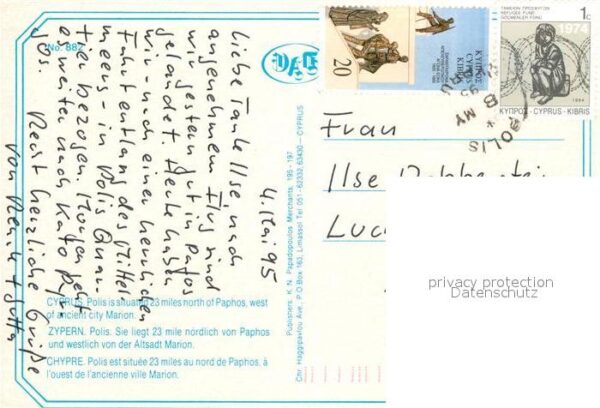 No. 882
4. Mai 95
Liebe Tante Ilse, nach
angenehmem Flug sind
wir gestern gut in Pafos
gelandet. Heute haben
wir - nach einer herrlichen
Fahrt entlang des Mittel-
meers - in Polis Quar-
tier bezogen. Morgen geht
es weiter nach Kato Pyr-
gos.
Recht herzliche Grüße
von
CYPRUS. Polis is situated 23 miles north of Paphos, west
of ancient city Marion.
ZYPERN. Polis. Sie liegt 23 mile nördlich von Paphos
und westlich von der Altsadt Marion.
CHYPRE. Polis est située 23 miles au nord de Paphos, à
l'ouest de l'ancienne ville Marion.
Publishers: K. N. Papadopoulos Merchants, 195 - 197
Chr. Haggipavlou Ave., P.O.Box 163, Limassol Tel 051 - 62332, 63430 — CYPRUS
20
ΚΥΠΡΟΣ
CYPRUS
KIBRIS
1974
1c
ΚΥΠΡΟΣ - CYPRUS - KIBRIS
1994
POLIS
MY
95
Frau
Ilse
privacy protection
Datenschutz